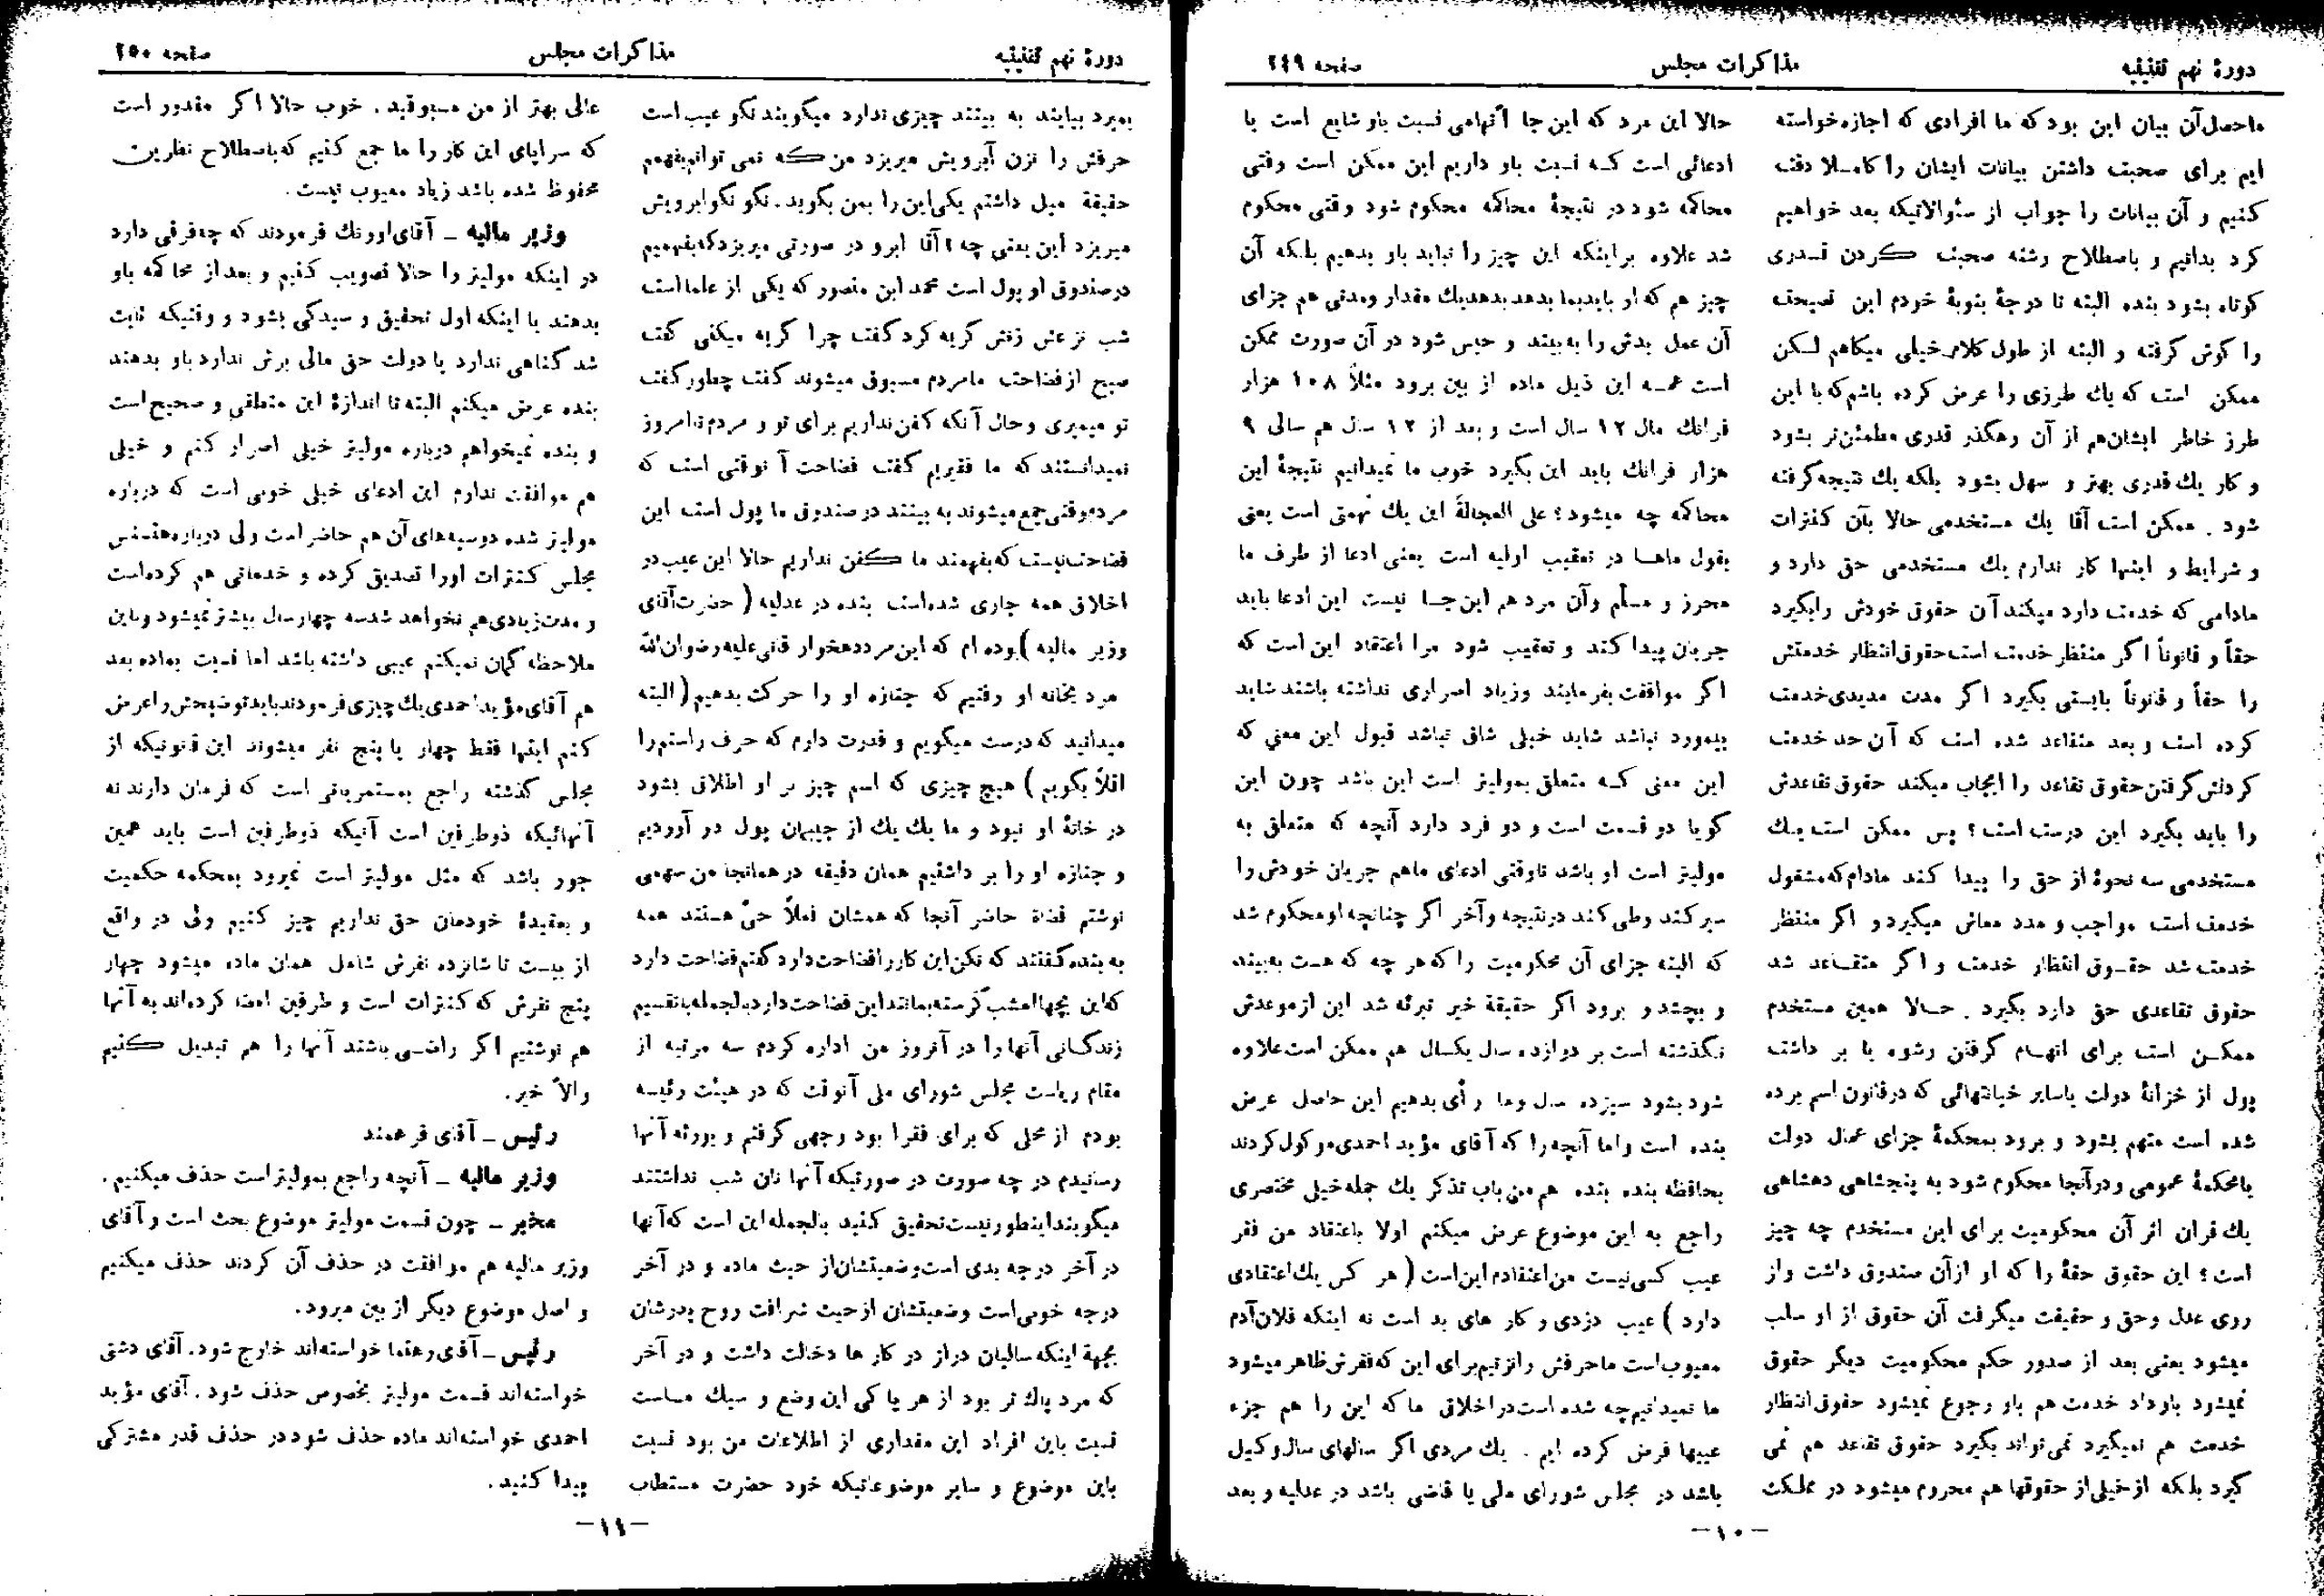 دورهٔ نهم تقنینیه
مذاکرات مجلس
صفحه ۲۴۹
ماحصل آن بیان این بود که ما افرادی که اجازه خواسته
ایم برای صحبت داشتن بیانات ایشان را کاملا دقت
کنیم و آن بیانات را جواب از سئوالاتیکه بعد خواهیم
کرد بدانیم و باصطلاح رشته صحبت کردن قدری
کوتاه بشود بنده البته تا درجهٔ بنوبهٔ خودم این نصیحت
را گوش گرفته و البته از طول کلام خیلی میکاهم لکن
ممکن است که یك طرزی را عرض کرده باشم که با این
طرز خاطر ایشان هم از آن رهگذر قدری مطمئن‌تر بشود
و کار یك قدری بهتر و سهل بشود بلکه یك نتیجه گرفته
شود . ممکن است آقا یك مستخدمی حالا بآن کنترات
و شرایط و اینها کار ندارم یك مستخدمی حق دارد و
مادامی که خدمت دارد میکند آن حقوق خودش را بگیرد
حقاً و قانوناً اگر منتظر خدمت است حقوق انتظار خدمتش
را حقاً و قانوناً بایستی بگیرد اگر مدت مدیدی خدمت
کرده است و بعد متقاعد شده است که آن حد خدمت
کردنش گرفتن حقوق تقاعد را ایجاب میکند حقوق تقاعدش
را باید بگیرد این درست است ؟ پس ممکن است یك
مستخدمی سه نحوهٔ از حق را پیدا کند مادام که مشغول
خدمت است مواجب و مدد معاش میگیرد و اگر منتظر
خدمت شد حقوق انتظار خدمت و اگر متقاعد شد
حقوق تقاعدی حق دارد بگیرد . حالا همین مستخدم
ممکن است برای اتهام گرفتن رشوه یا بر داشت
پول از خزانهٔ دولت یا سایر خیانتهائی که در قانون اسم برده
شده است متهم بشود و برود بمحکمهٔ جزای عمال دولت
یا محکمهٔ عمومی و در آنجا محکوم شود به پنجشاهی دهشاهی
یك قران اثر آن محکومیت برای این مستخدم چه چیز
است ؟ این حقوق حقهٔ را که او از آن صندوق داشت و از
روی عدل و حق و حقیقت میگرفت آن حقوق از او سلب
میشود یعنی بعد از صدور حکم محکومیت دیگر حقوق
نمیشود باو داد خدمت هم باو رجوع نمیشود حقوق انتظار
خدمت هم نمیگیرد نمی تواند بگیرد حقوق تقاعد هم نمی
گیرد بلکه از خیلی از حقوقها هم محروم میشود در مملکت
حالا این مرد که این جا اتهامی نسبت باو شایع است یا
ادعائی است که نسبت باو داریم این ممکن است وقتی
محاکمه شود در نتیجهٔ محاکمه محکوم شود وقتی محکوم
شد علاوه بر اینکه این چیز را نباید باو بدهیم بلکه آن
چیز هم که او باید بما بدهد بدهد یك مقدار و مدتی هم جزای
آن عمل بدش را به بیند و حبس شود در آن صورت ممکن
است همه این ذیل ماده از بین برود مثلاً ۱۰۸ هزار
فرانك مال ۱۲ سال است و بعد از ۱۲ سال هم سالی ۹
هزار فرانك باید این بگیرد خوب ما نمیدانیم نتیجهٔ این
محاکمه چه میشود ؟ علی العجالةً این یك تهمتی است یعنی
بقول ماها در تعقیب اولیه است یعنی ادعا از طرف ما
محرز و مسلم و آن مرد هم این جا نیست این ادعا باید
جریان پیدا کند و تعقیب شود مرا اعتقاد این است که
اگر موافقت بفرمایند و زیاد اصراری نداشته باشند شاید
بیمورد نباشد شاید خیلی شاق نباشد قبول این معنی که
این معنی که متعلق بمولیتر است این باشد چون این
گویا دو قسمت است و دو فرد دارد آنچه که متعلق به
مولیتر است او باشد تا وقتی ادعای ماهم جریان خودش را
سیر کند و طی کند در نتیجه و آخر اگر چنانچه او محکوم شد
که البته جزای آن محکومیت را که هر چه که هست به بیند
و بچشد و برود اگر حقیقة خیر تبرئه شد این از موعدش
نگذشته است بر دوازده سال یکسال هم ممکن است علاوه
شود بشود سیزده سال و ما رأی بدهیم این حاصل عرض
بنده است و اما آنچه را که آقای مؤید احمدی موکول کردند
بحافظه بنده بنده هم من باب تذکر یك جمله خیلی مختصری
راجع به این موضوع عرض میکنم اولا باعتقاد من فقر
عیب کسی نیست من اعتقادم این است ( هر کس یك اعتقادی
دارد ) عیب دزدی و کار های بد است نه اینکه فلان آدم
معیوب است ما حرفش را نزنیم برای این که فقرش ظاهر میشود
ما نمیدانیم چه شده است در اخلاق ما که این را هم جزء
عیبها فرض کرده ایم . یك مردی اگر سالهای سال وکیل
باشد در مجلس شورای ملی یا قاضی باشد در عدلیه و بعد
–۱۰–
دورهٔ نهم تقنینیه
مذاکرات مجلس
صفحه ۲۵۰
بمیرد بیایند به بینند چیزی ندارد میگویند نگو عیب است
حرفش را نزن آبرویش میریزد من که نمی توانم بفهمم
حقیقة میل داشتم یکی این را بمن بگوید . نگو نگو ابرویش
میریزد این یعنی چه ؟ آقا ابرو در صورتی میریزد که بفهمیم
در صندوق او پول است محمد ابن منصور که یکی از علما است
شب نزعش زنش گریه کرد گفت چرا گریه میکنی گفت
صبح از فضاحت ما مردم مسبوق میشوند گفت چطور گفت
تو میمیری و حال آنکه کفن نداریم برای تو و مردم تا امروز
نمیدانستند که ما فقیریم گفت فضاحت آ نوقتی است که
مردم وقتی جمع میشوند به بینند در صندوق ما پول است این
فضاحت نیست که بفهمند ما کفن نداریم حالا این عیب در
اخلاق همه جاری شده است بنده در عدلیه ( حضرت آقای
وزیر مالیه ) بوده ام که این مرد دهخوار قانی علیه رضوان الله
مرد بخانه او رفتیم که جنازه او را حرکت بدهیم ( البته
میدانید که درست میگویم و قدرت دارم که حرف راستم را
اقلاً بگویم ) هیچ چیزی که اسم چیز بر او اطلاق بشود
در خانهٔ او نبود و ما یك یك از جیبمان پول در آوردیم
و جنازه او را بر داشتیم همان دقیقه در همانجا من سهمی
نوشتم قضاة حاضر آنجا که همشان فعلاً حیّ هستند همه
به بنده گفتند که نکن این کار را فضاحت دارد گفتم فضاحت دارد
که این بچها امشب گرسنه بمانند این فضاحت دارد بالجمله بالتقسیم
زندگانی آنها را در آنروز من اداره کردم سه مرتبه از
مقام ریاست مجلس شورای ملی آنوقت که در هیئت رئیسه
بودم از محلی که برای فقرا بود وجهی گرفتم و بورثه آنها
رسانیدم در چه صورت در صورتیکه آنها نان شب نداشتند
میگویند اینطور نیست تحقیق کنید بالجمله این است که آنها
در آخر درجه بدی است وضعیتشان از حیث ماده و در آخر
درجه خوبی است وضعیتشان از حیث شرافت روح پدرشان
بجهة اینکه سالیان دراز در کار ها دخالت داشت و در آخر
که مرد پاك تر بود از هر پاکی این وضع و سبك ماست
نسبت باین افراد این مقداری از اطلاعات من بود نسبت
باین موضوع و سایر موضوعاتیکه خود حضرت مستطاب
عالی بهتر از من مسبوقید . خوب حالا اگر مقدور است
که سراپای این کار را ما جمع کنیم که باصطلاح نظرین
محفوظ شده باشد زیاد معیوب نیست .
وزیر مالیه ــ آقای اورنك فرمودند که چه فرقی دارد
در اینکه مولیتر را حالا تصویب کنیم و بعد از محاکمه باو
بدهند یا اینکه اول تحقیق و رسیدگی بشود و وقتیکه ثابت
شد گناهی ندارد یا دولت حق مالی برش ندارد باو بدهند
بنده عرض میکنم البته تا اندازهٔ این منطقی و صحیح است
و بنده نمیخواهم درباره مولیتر خیلی اصرار کنم و خیلی
هم موافقت ندارم این ادعای خیلی خوبی است که درباره
مولیتر شده دوسیه‌های آن هم حاضر است ولی درباره هنسنس
مجلس کنترات اورا تصدیق کرده و خدماتی هم کرده است
و مدت زیادی هم نخواهد شد سه چهار سال بیشتر نمیشود و باین
ملاحظه گمان نمیکنم عیبی داشته باشد اما نسبت بماده بعد
هم آقای مؤید احمدی یك چیزی فرمودند باید توضیحش را عرض
کنم اینها فقط چهار یا پنج نفر میشوند این قانونیکه از
مجلس گذشته راجع بمستمریاتی است که فرمان دارند نه
آنهائیکه ذوطرفین است آنیکه ذوطرفین است باید همین
جور باشد که مثل مولیتر است نمیرود بمحکمه حکمیت
و بعقیدهٔ خودمان حق نداریم چیز کنیم ولی در واقع
از بیست تا شانزده نفرش شامل همان ماده میشود چهار
پنج نفرش که کنترات است و طرفین امضا کرده‌اند به آنها
هم نوشتیم اگر راضی باشند آنها را هم تبدیل کنیم
والاّ خیر .
رئیس ــ آقای فرهمند
وزیر مالیه ــ آنچه راجع بمولیتر است حذف میکنیم .
مخبر ــ چون قسمت مولیتر موضوع بحث است و آقای
وزیر مالیه هم موافقت در حذف آن کردند حذف میکنیم
و اصل موضوع دیگر از بین میرود .
رئیس ــ آقای رهنما خواسته‌اند خارج شود . آقای دشتی
خواسته‌اند قسمت مولیتر بخصوص حذف شود . آقای مؤید
احمدی خواسته‌اند ماده حذف شود در حذف قدر مشترکی
پیدا کنید .
–۱۱–